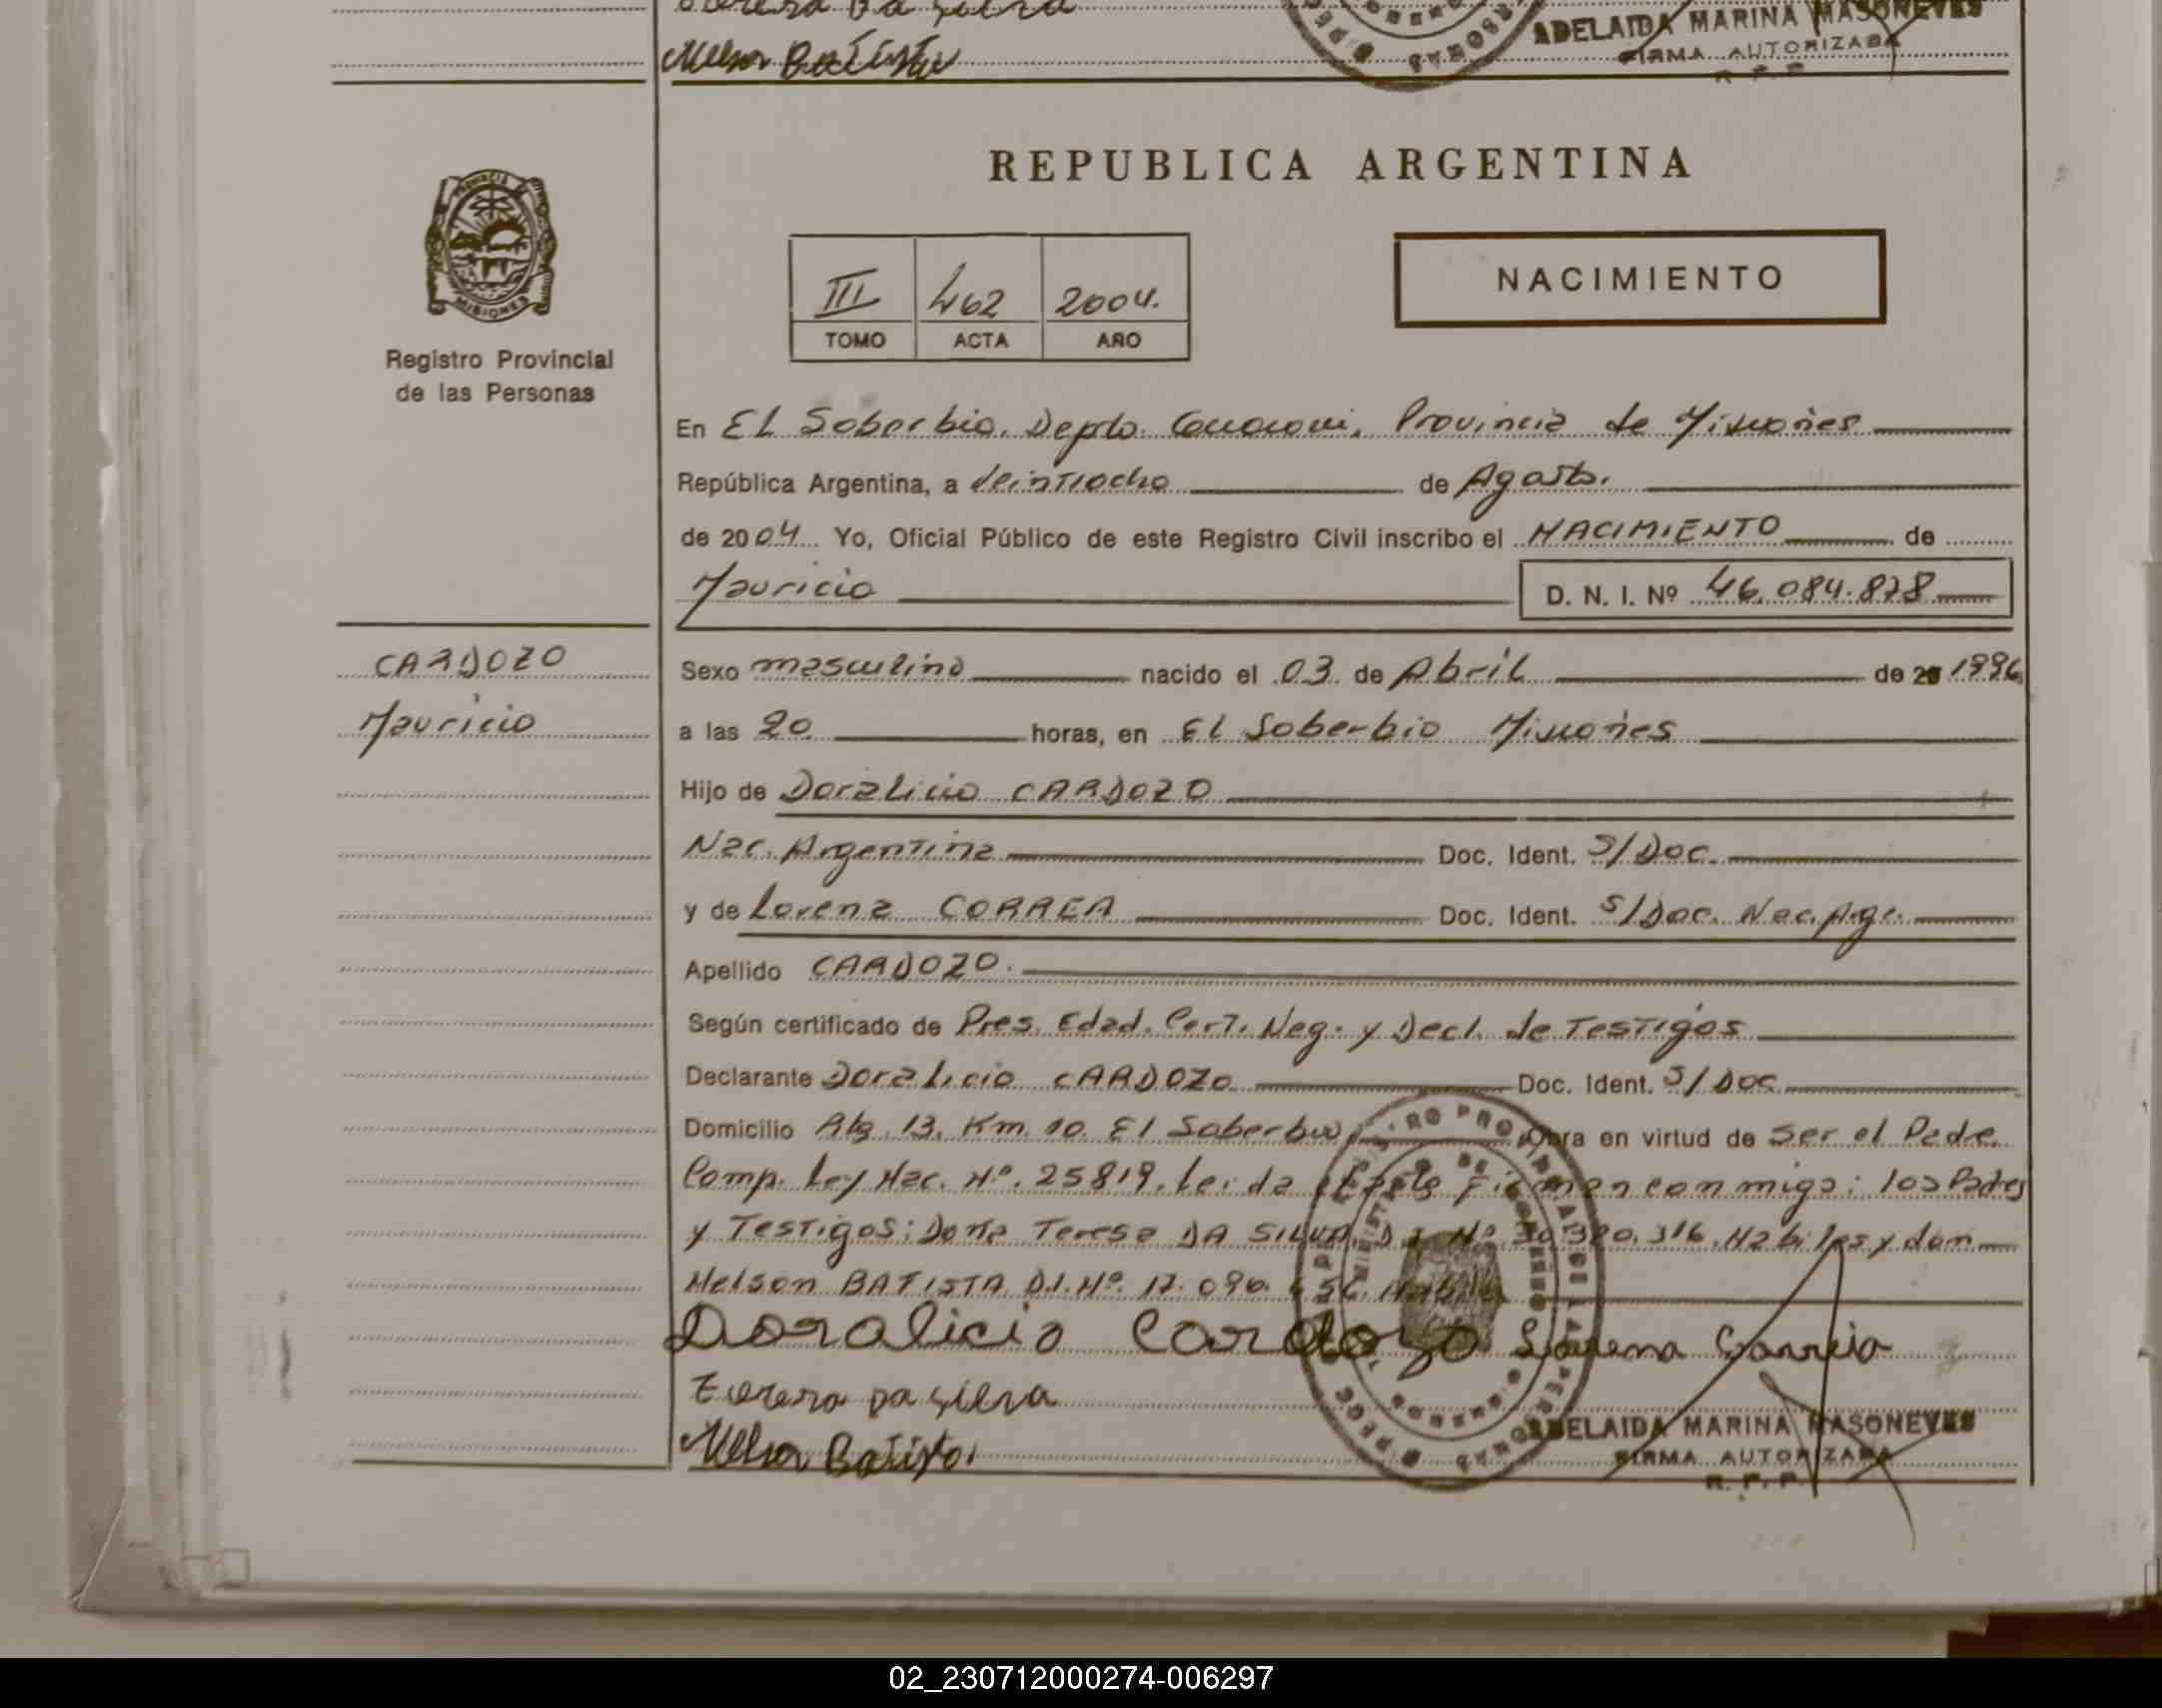 ADELAIDA MARINA MASONEVES
Nelson Batista
FIRMA AUTORIZADA
REPUBLICA ARGENTINA
PROVINCIA DE
MISIONES
III 462 2004.
TOMO ACTA AÑO
NACIMIENTO
Registro Provincial
de las Personas
En El Soberbio, Depto. Guaraní, Provincia de Misiones
República Argentina, a Veintiocho de Agosto.
de 2004 Yo, Oficial Público de este Registro Civil inscribo el NACIMIENTO de
Mauricio D. N. I. Nº 46.084.878
CARDOZO
Mauricio
Sexo masculino nacido el 03 de Abril de 20 1996
a las 20 horas, en El Soberbio Misiones
Hijo de Doralicio CARDOZO
Nac. Argentina Doc. Ident. S/Doc.
y de Lorena CORREA Doc. Ident. S/Doc. Nac. Arg.
Apellido CARDOZO.
Según certificado de Pres. Edad. Cert. Neg. y Decl. de Testigos
Declarante Doralicio CARDOZO Doc. Ident. S/Doc
Domicilio Km. 10. El Soberbio Obra en virtud de Ser el Padre
Comp. Ley Nac. Nº. 25819. Leida el acta Firman conmigo: los Padres
y Testigos: Doña Teresa DA SILVA D.I. Nº 30.380.316. Habiles y dom
Nelson BATISTA D.I. Nº. 17.090. Habiles
Doralicio Cardozo Lorena Correia
Terera Da Silva
Nelson Batista
ADELAIDA MARINA MASONEVES
FIRMA AUTORIZADA
R. P. P.
02_230712000274-006297